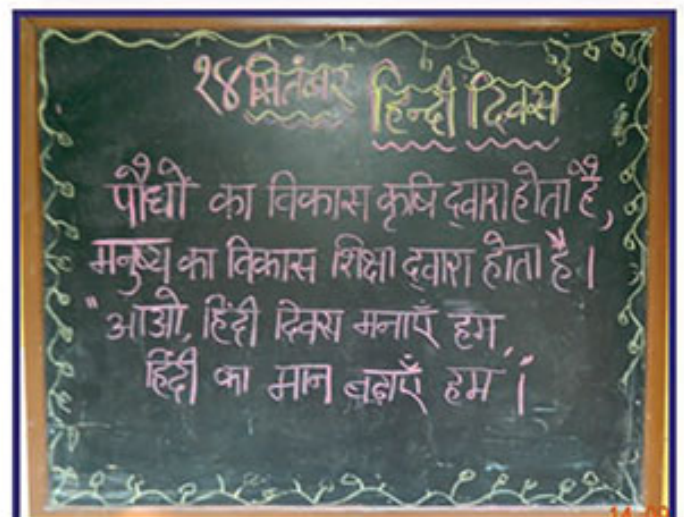 १४ सितंबर हिन्दी दिवस
पौधों का विकास कृषि द्वारा होता है,
मनुष्य का विकास शिक्षा द्वारा होता है।
"आओ, हिंदी दिवस मनाएँ हम,
हिंदी का मान बढ़ाएँ हम"।